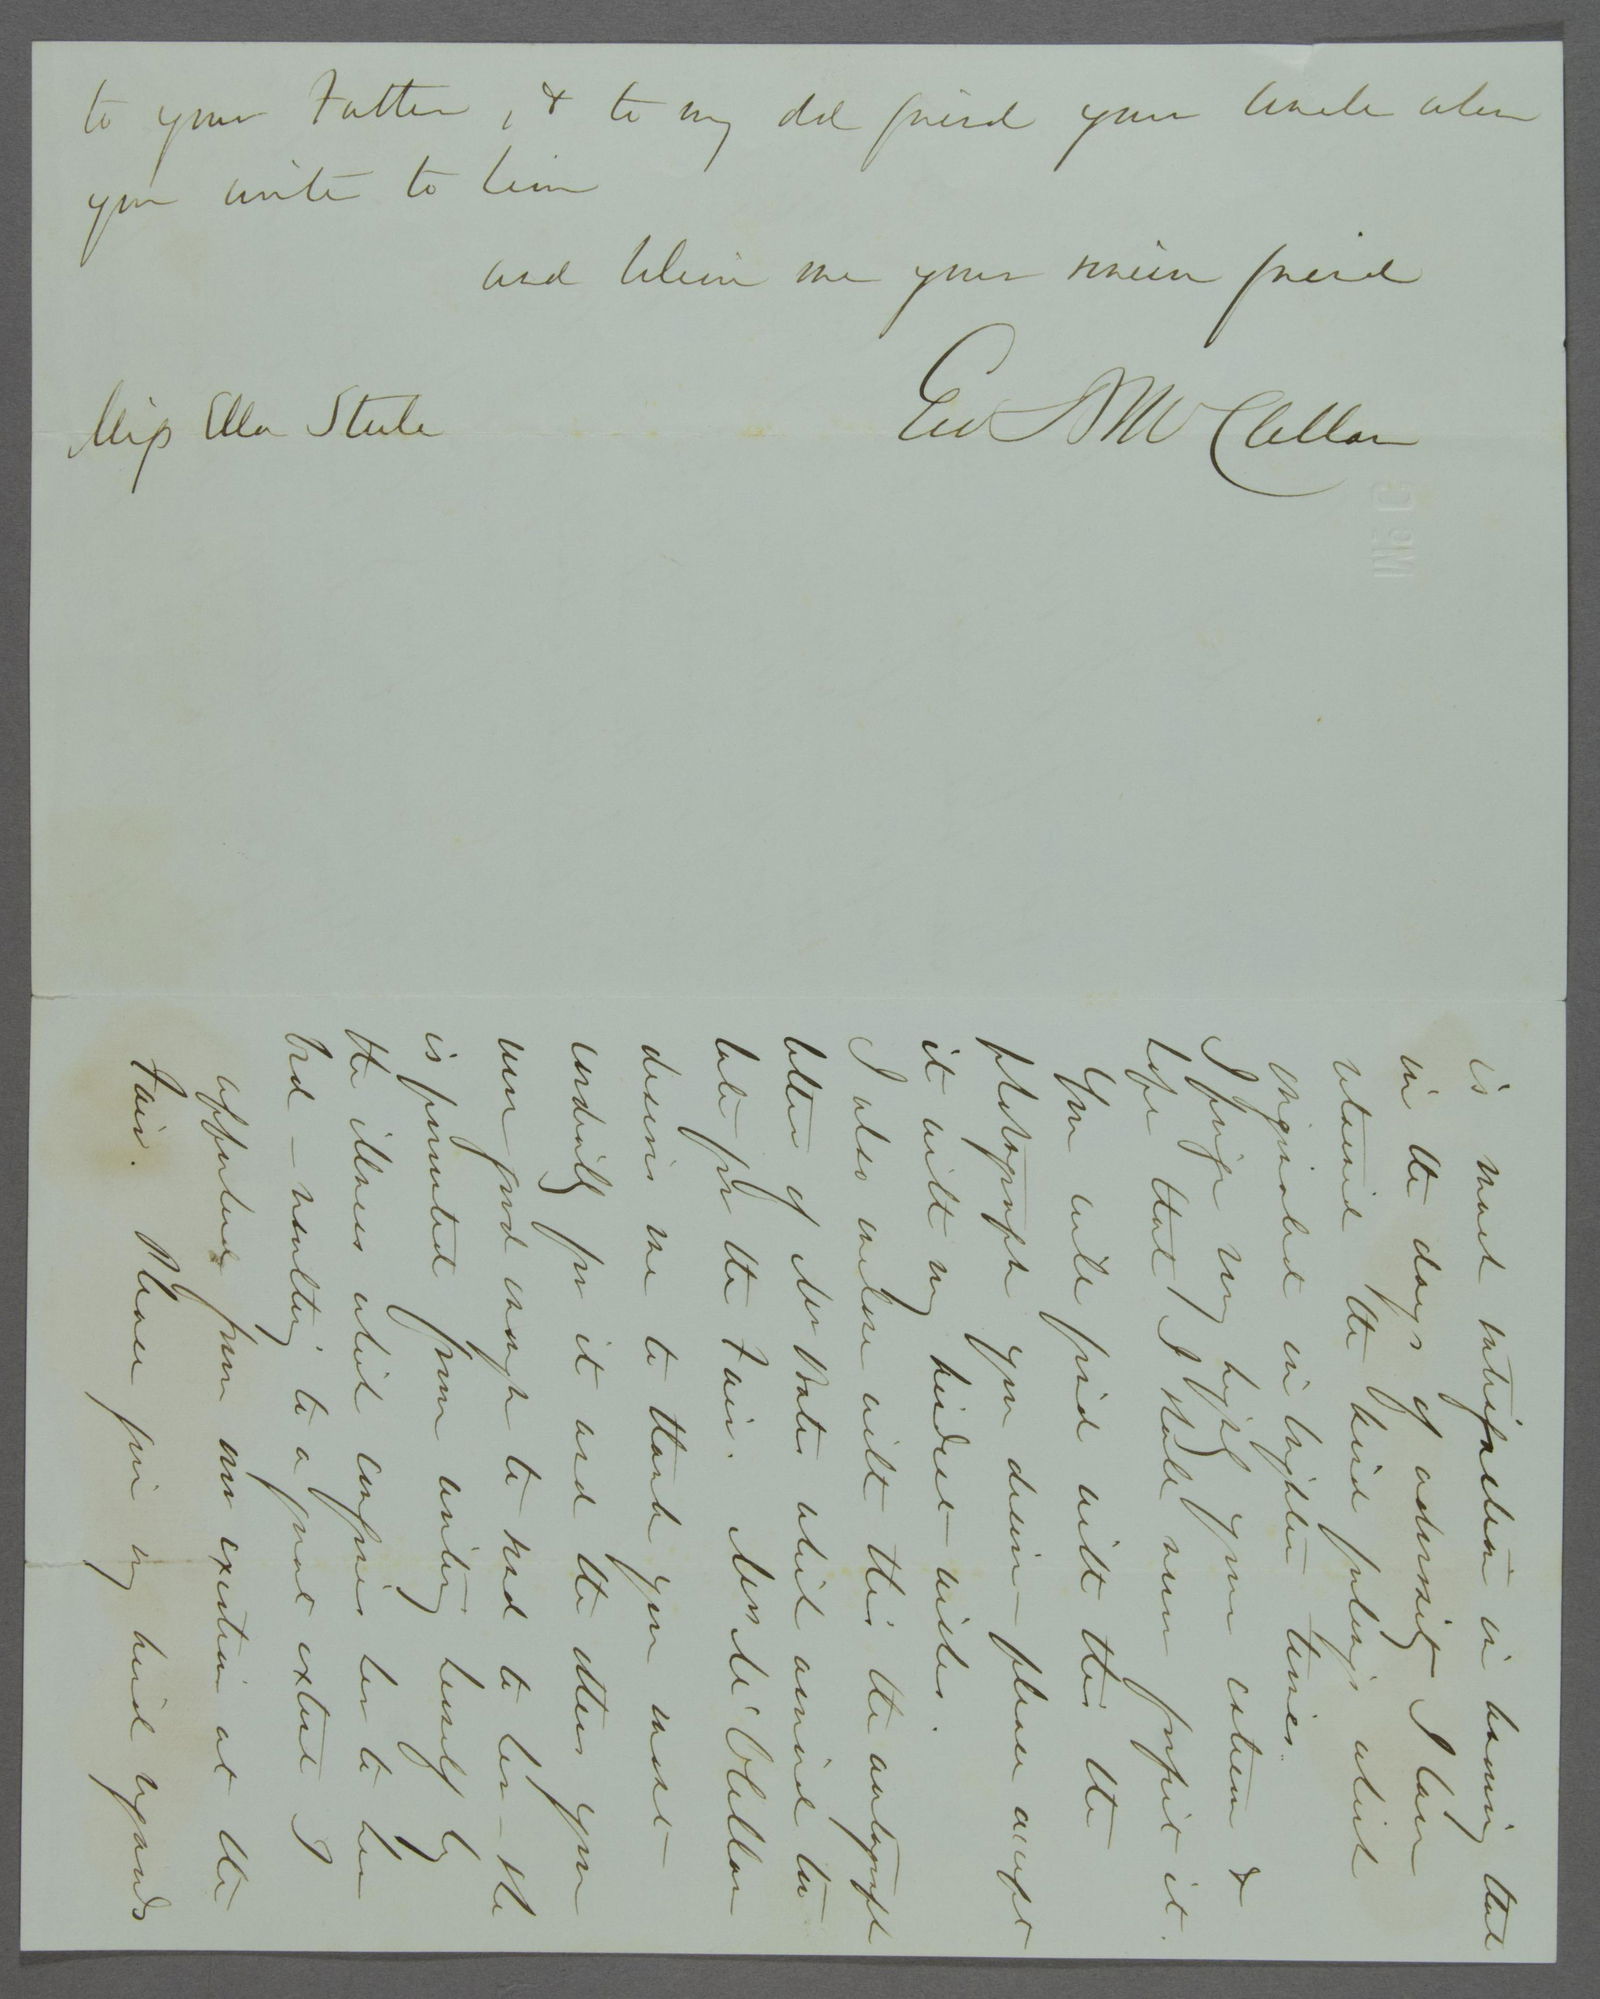 to your Father, & to my old friend your Uncle when
you write to him
and believe me your sincere friend
Geo B McClellan
Miss Ella Steele
is much satisfaction in knowing that
in the days of adversity I have
retained the kind feelings which
originated in brighter times.
I prize very highly your esteem &
hope that I shall never forfeit it.
You will find with this the
photograph you desire — please accept
it with my kindest wishes.
I also enclose with this the autograph
letter of Mr Bates which arrived too
late for the Fair. Mrs McClellan
desires me to thank you most
cordially for it and the others you
were good enough to send to her — She
is prevented from writing herself by
the illness which confines her to her
bed — resulting to a great extent I
apprehend from over exertion at the
Fair. Please give my kind regards